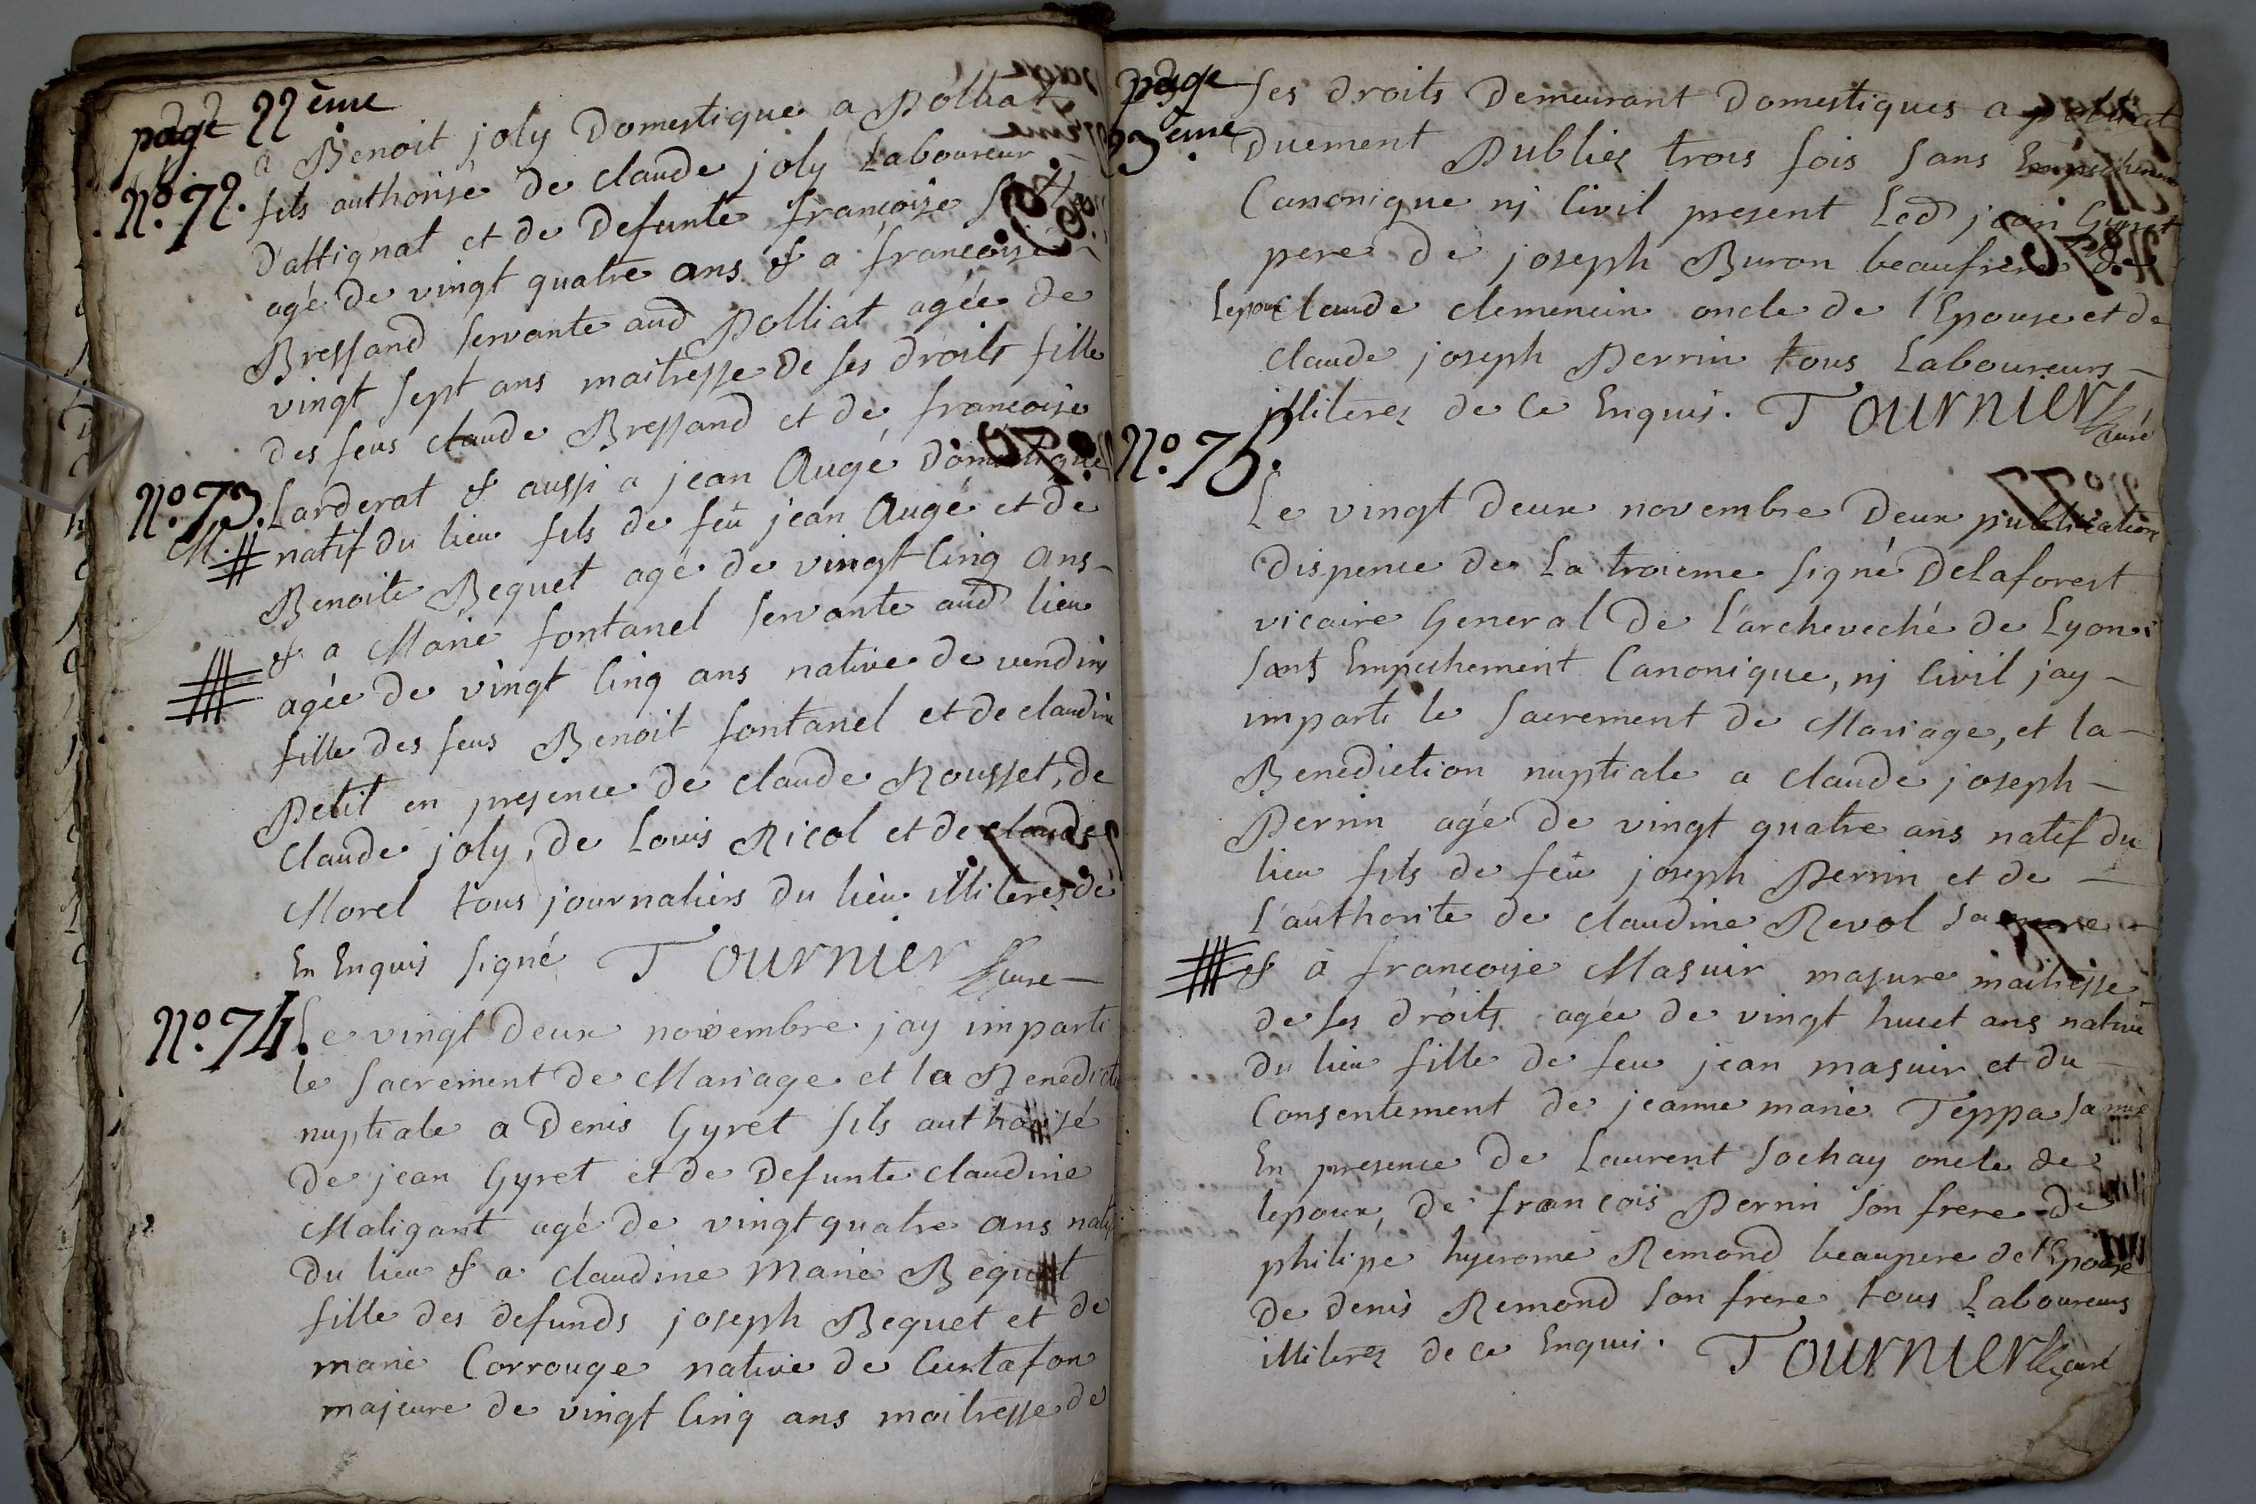 page 22ème
a Benoit joly Domestique a Polliat
N°. 72. fils authorisé de claude joly Laboureur
D'attignat et de Defunte françoise
agé de vingt quatre ans & a françoise
Bressand servante aud Polliat agée de
vingt sept ans maitresse de ses droits fille
des feus claude Bressand et de françoise
N°. 73. Larderat & aussi a jean Augé Domestique
M. natif du lieu fils de feu jean Augé et de
Benoite Bequet agé de vingt Cinq ans
& a Marie fontanel servante aud lieu
agée de vingt Cinq ans native de vendins
fille des feus Benoit fontanel et de claudine
Petit en presence de claude Rousset, de
Claude joly, de Louis Ricol et de claude
Morel tous journaliers du lieu illiterez de
En Enquis signé Tournier Curé
N°. 74. Le vingt deux novembre jay imparti
le sacrement de Mariage et la Benedict
nuptiale a Denis Gyret fils authorisé
de jean Gyret et de Defunte claudine
Maligant agé de vingt quatre ans natif
du lieu & a claudine Marie Bequet
fille des defunds joseph Bequet et de
marie Corrouge native de Curtafon
majeure de vingt Cinq ans maitresse de
page 23ème
ses droits Demeurant Domestiques a polliat
Duement Publiez trois fois sans Empechement
Canonique nj Civil present Led jean Gyret
pere de joseph Buron beaufrere de
Lepoux claude clemencin oncle de l'Epouse et de
claude joseph Perrin tous Laboureurs
illiterez de Ce Enquis. Tournier Curé
N°. 75.
Le vingt deux novembre Deux publications
dispence de La troieme signé Delaforest
vicaire General De L'archeveché de Lyon
sans Empechement Canonique, nj Civil jay
imparti le sacrement de Mariage, et la
Benediction nuptiale a claude joseph
Perrin agé de vingt quatre ans natif du
lieu fils de feu joseph Perrin et de
L'authorite de claudine Revol sa mere
& a francoise Masuir majure maitresse
de ses droits agée de vingt huet ans native
du lieu fille de feu jean masuir et du
Consentement de jeanne marie Teppa sa mere
En presence de Laurent sochay oncle de
lepoux, de francois Perrin son frere de
philipe hyerome Remond beaupere de l'Epouse
de denis Remond son frere tous Laboureurs
illiterez de ce Enquis. Tournier Curé